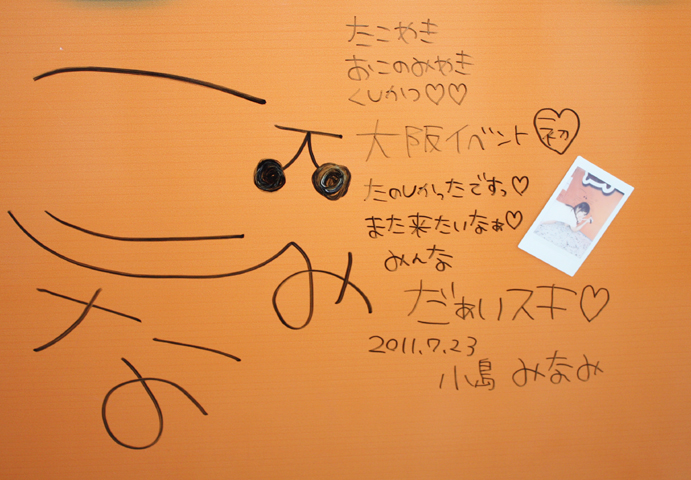 たこやき
おこのみやき
くしかつ♡♡
大阪イベント 初
たのしかったですっ♡
また来たいなぁ♡
みんな
だぁいスキ♡
2011.7.23
小島 みなみ
みなみ